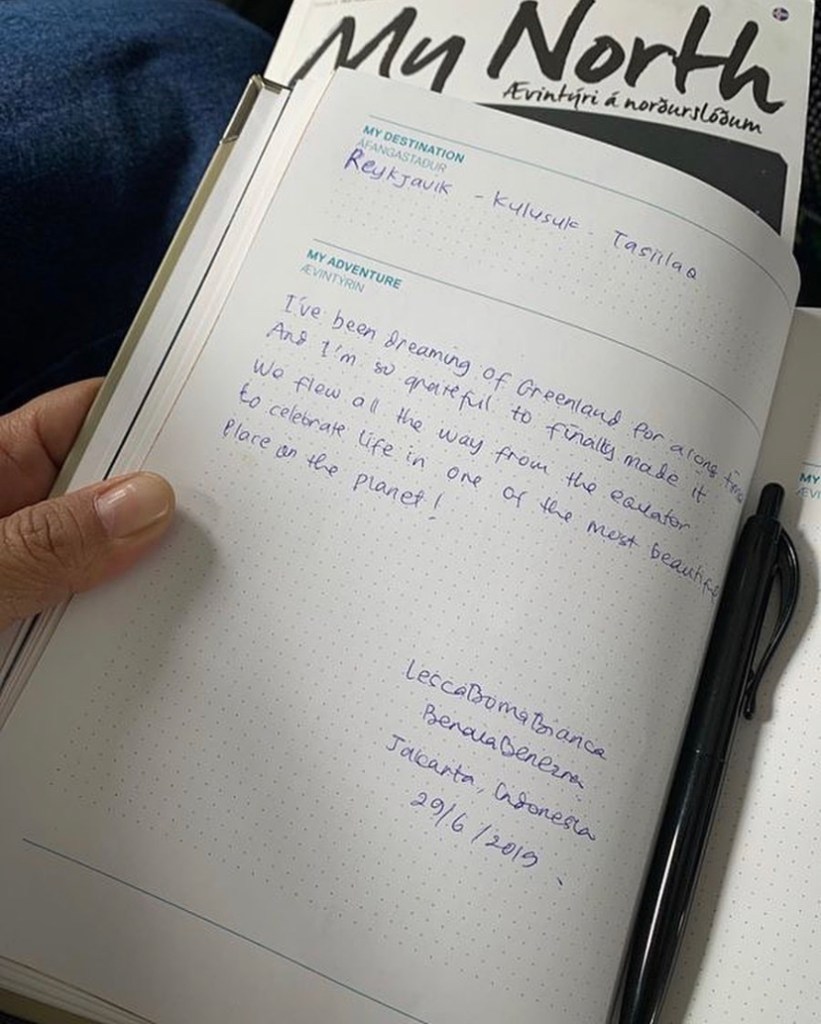 My North
Ævintýri á norðurslóðum
MY DESTINATION
ÁFANGASTAÐUR
Reykjavik - Kulusuk - Tasiilaq
MY ADVENTURE
ÆVINTÝRIN
I've been dreaming of Greenland for a long time
And I'm so grateful to finally made it
We flew all the way from the equator
to celebrate life in one of the most beautiful
Place on the planet!
LescaBomaBianca
BenaiaBenezra
Jakarta, Indonesia
29/6/2019
MY